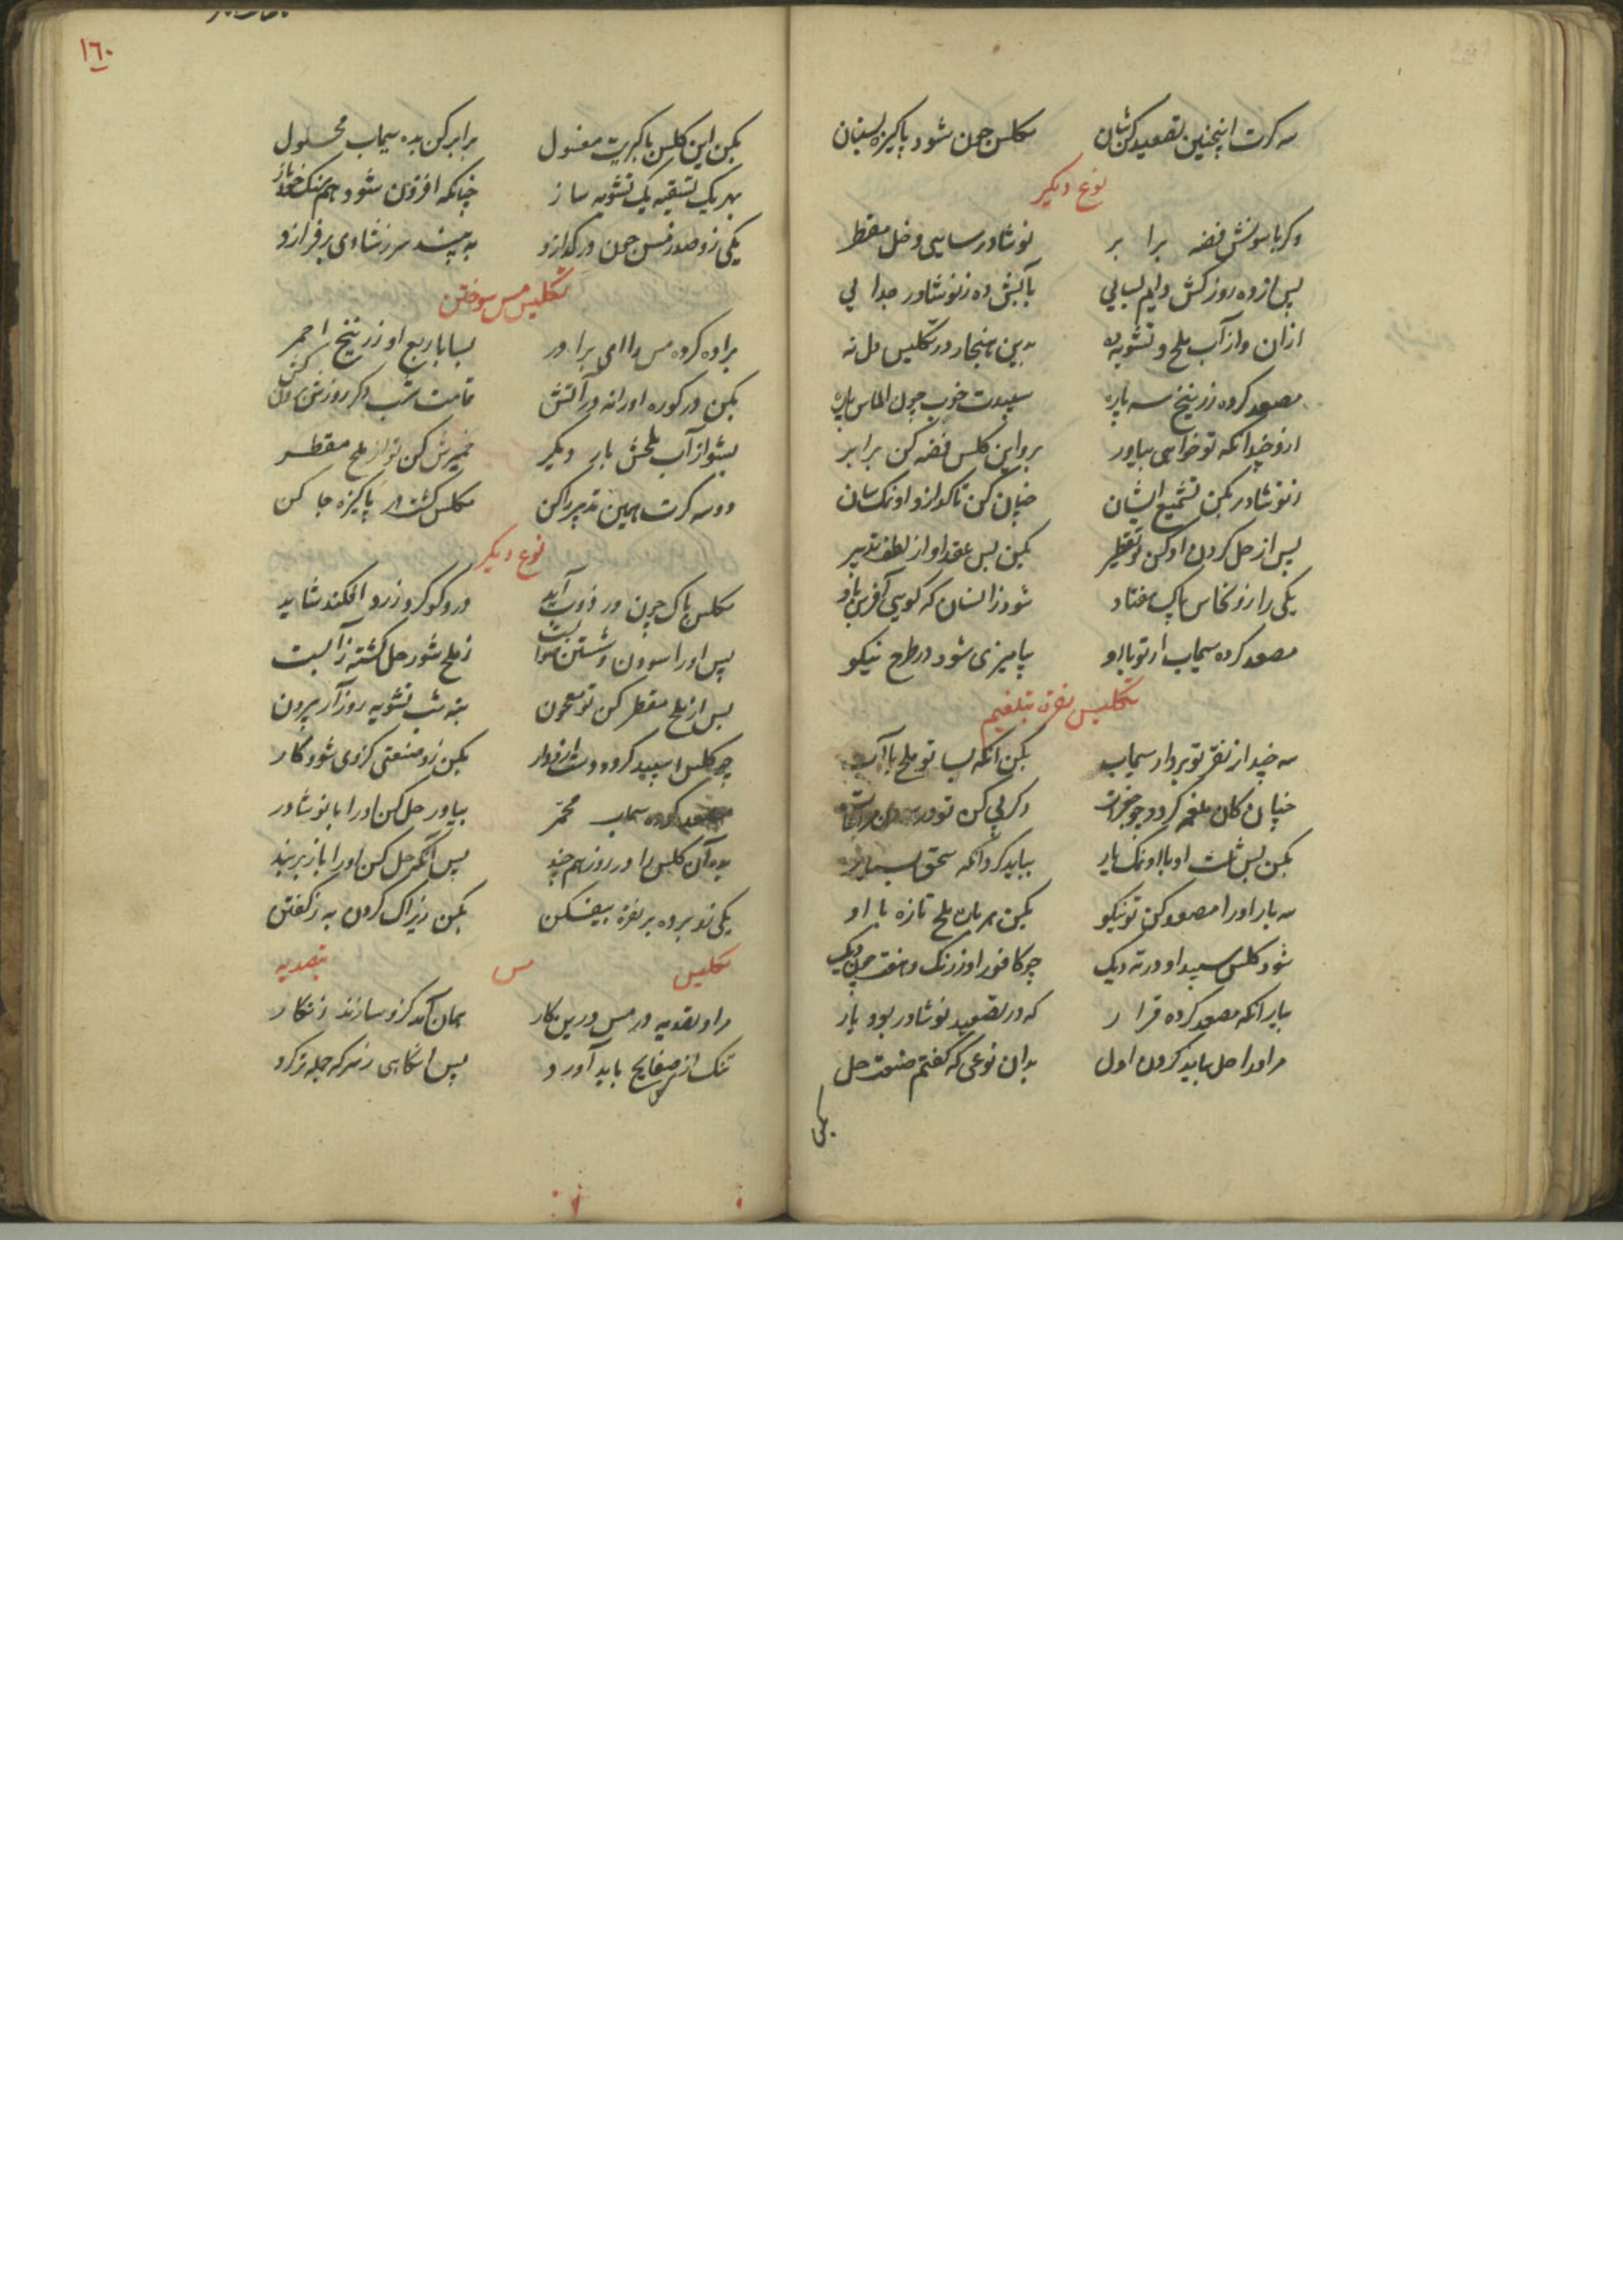 سه کرت اینچنین تصعید کن شان مکلس چون شود پاکیزه بستان
نوع دیکر
وکر با سونش فضه برا بر نوشادر سایی و خل مقطر
پس از ده روز کش دایم بسایی بآبش ده ز نوشادر جدا یی
ازان و از آب ملح و تشویه ده بدین هنجار در تکلیس دل نه
مصعد کرده زرنیخ سه پاره سپیدت خوب چون الماس پاره
ازو چندانکه تو خواهی بیاور برو این کلس فضه کن برابر
ز نوشادر بکن تشمیع ایشان چنان کن تا کدازد او نمک سان
پس از حل کردن او کن تو تقطیر بکن پس عقد او از لطف تدبیر
یکی را زو نحاس پاک هفتاد شود زانسان که کویی آفرین باد
مصعد کرده سیماب ار تو با او بیامیزی شود در طرح نیکو
تکلیس نقره بتلغیم
سه چند از نقره تو بردار سیماب بکن آنکه بسا تو ملح با آب
چنان کان ملغمه کردد چو دکر پی کن تو در
بکن پس ثلث او با او نمک یار بباید کرد آنکه سحق بسیار
سه بار او را مصعد کن تو نیکو بکن هر بار ملح تازه با او
شود کلس سپید او در ته دیک چو کافور او ز رنک و
بیار آنکه مصعد کرده قرا ر که در تصعید نوشادر بود یار
مر او را حل بباید کردن اول بدان نوعی که کفتم صنعت حل
بکن
١٦٠
بکن این کلس با کبریت مغسول برابر کن بده سیماب محلول
بهر یک تسقیه یک تشویه ساز چنانکه افزون شود هم سنک خود باز
یکی زو صد ز مس چون در کدازد به بیند سر ز شادی بر فرازد
تکلیس مس سوختن
براده کرده مس را ای برادر بسا با ربع او زرنیخ احمر
بکن در کوره او را نه در آتش تمامت شب دکر روزش
بشو از آب ملحش بار دیکر خمیرش کن تو از ملح مقطر
دو سه کرت همین تدبیر را کن مکلس کشت پاکیزه جا کن
نوع دیکر
مکلس پاک چون در ذوب آید درو کوکرد زرد افکند شاید
پس او را سودن و شستن ز ملح شور حل کشته زآبست
پس از ملح مقطر کن تو معجون بنه شب تشویه روز آر بیرون
چو کلس اسپید کردد دست ازو دار بکن زو صنعتی کزوی شود کار
مصعد کرده سیماب محمر بیاور حل کن او را با نوشادر
بده آن کلس را در روز هم چند پس آنکه حل کن او را باز بربند
یکی زو بر ده بر نقره بیفکن بکن زیراک کردن به ز کفتن
تکلیس مس بتصدیه
مراد تصدیه در مس درین کار همان آمد کزو سازند زنکار
تنک از مس صفایح باید آورد پس آنکاهی ز سرکه جمله تر کرد